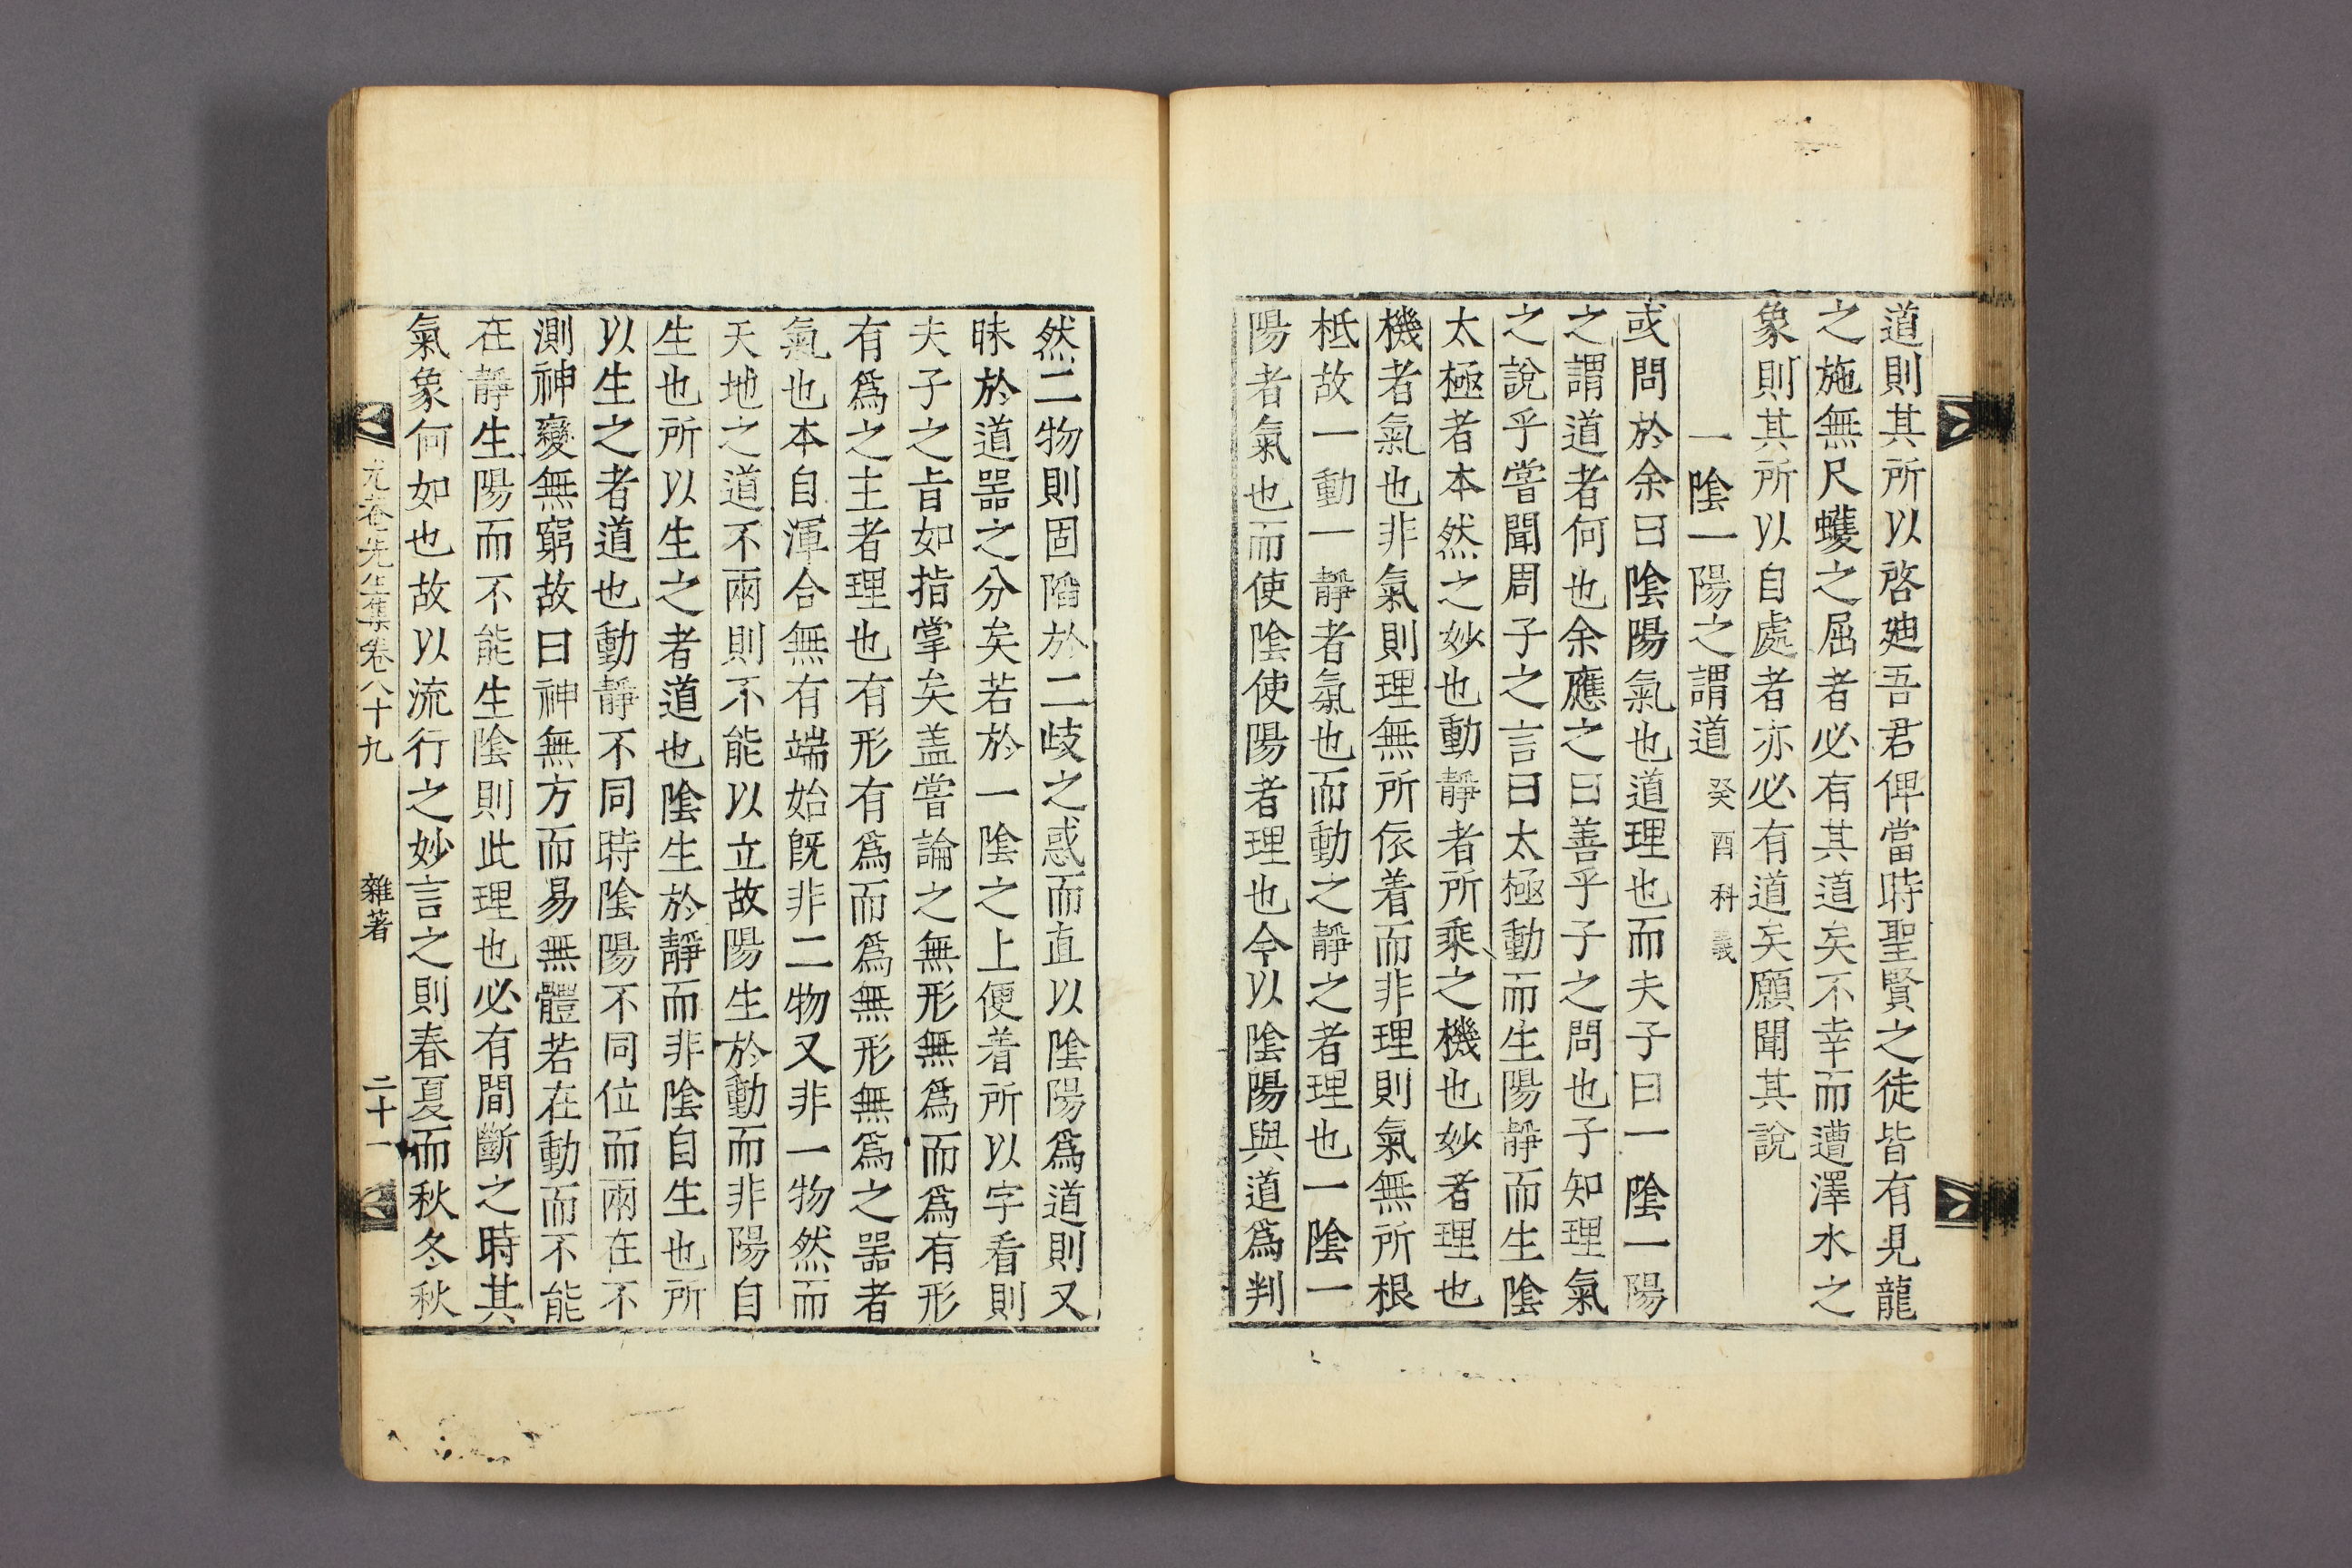 道則其所以啓廸吾君俾當時聖賢之徒皆有見龍
之施無尺蠖之屈者必有其道矣不幸而遭澤水之
象則其所以自處者亦必有道矣願聞其說
一陰一陽之謂道 癸酉科義
或問於余曰陰陽氣也道理也而夫子曰一陰一陽
之謂道者何也余應之曰善乎子之問也子知理氣
之說乎嘗聞周子之言曰太極動而生陽靜而生陰
太極者本然之妙也動靜者所乘之機也妙者理也
機者氣也非氣則理無所依着而非理則氣無所根
柢故一動一靜者氣也而動之靜之者理也一陰一
陽者氣也而使陰使陽者理也今以陰陽與道爲判
然二物則固陷於二歧之惑而直以陰陽爲道則又
昧於道器之分矣若於一陰之上便着所以字看則
夫子之旨如指掌矣盖嘗論之無形無爲而爲有形
有爲之主者理也有形有爲而爲無形無爲之器者
氣也本自渾合無有端始旣非二物又非一物然而
天地之道不兩則不能以立故陽生於動而非陽自
生也所以生之者道也陰生於靜而非陰自生也所
以生之者道也動靜不同時陰陽不同位而兩在不
測神變無窮故曰神無方而易無體若在動而不能
在靜生陽而不能生陰則此理也必有間斷之時其
氣象何如也故以流行之妙言之則春夏而秋冬秋
尤菴先生集卷八十九 雜著 二十一